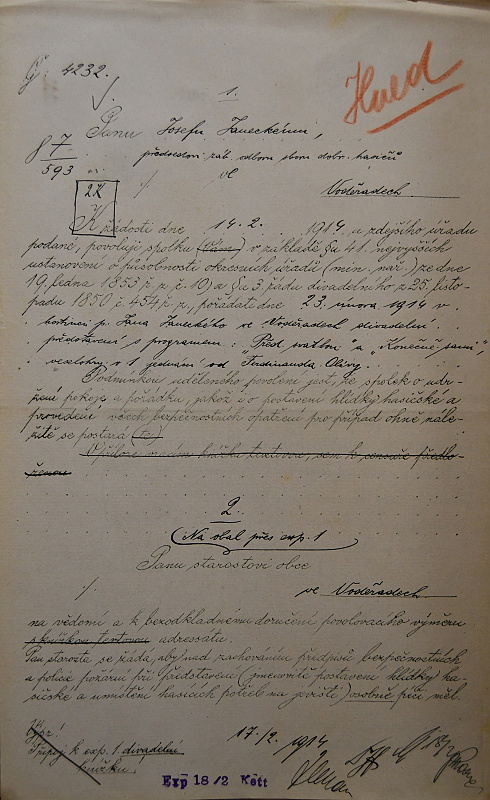 Čj. 4232.
Hned
1.
Panu Josefu Janeckému,
předsedovi záb. odboru sboru dobr. hasičů
7
593
2K
ve
Voděradech.
K žádosti dne 14.2. 1914 u zdejšího úřadu
podané, povoluji spolku (Vám) v základě §u 41. nejvyšších
ustanovení o působnosti okresních úřadů (min. nař.) ze dne
19. ledna 1853 ř. z. č. 10) a §u 3. řádu divadelního z 25. listo-
padu 1850 č. 454 ř. z., pořádati dne 23. února 1914 v
hostinci p. Jana Janeckého ve Voděradech divadelní
představení s programem: "Před svatbou" a "Konečně sami",
veselohry v 1 jednání od Ferdinanda Olivy.
Podmínkou uděleného povolení jest, že spolek o udr-
žení pokoje a pořádku, jakož i o postavení hlídky hasičské a
provedení všech bezpečnostních opatření pro případ ohně nále-
žitě se postará (te)
knížku textovou, sem k censuře předlo-
ženou
2.
(Na obal přes exp. 1)
Panu starostovi obce
ve Voděradech
na vědomí a k bezodkladnému doručení povolovacího výměru
s knížkou textovou adressátu.
Pan starosta se žádá, aby nad zachováním předpisů bezpečnostních
a policie požární při představení (jmenovitě postavení hlídky ha-
sičské a umístění hasicích potřeb na jevišti) osobně péči měl.
Připoj k exp. 1 divadelní
knížku.
17/2. 1914
Exp 18/2 Kott